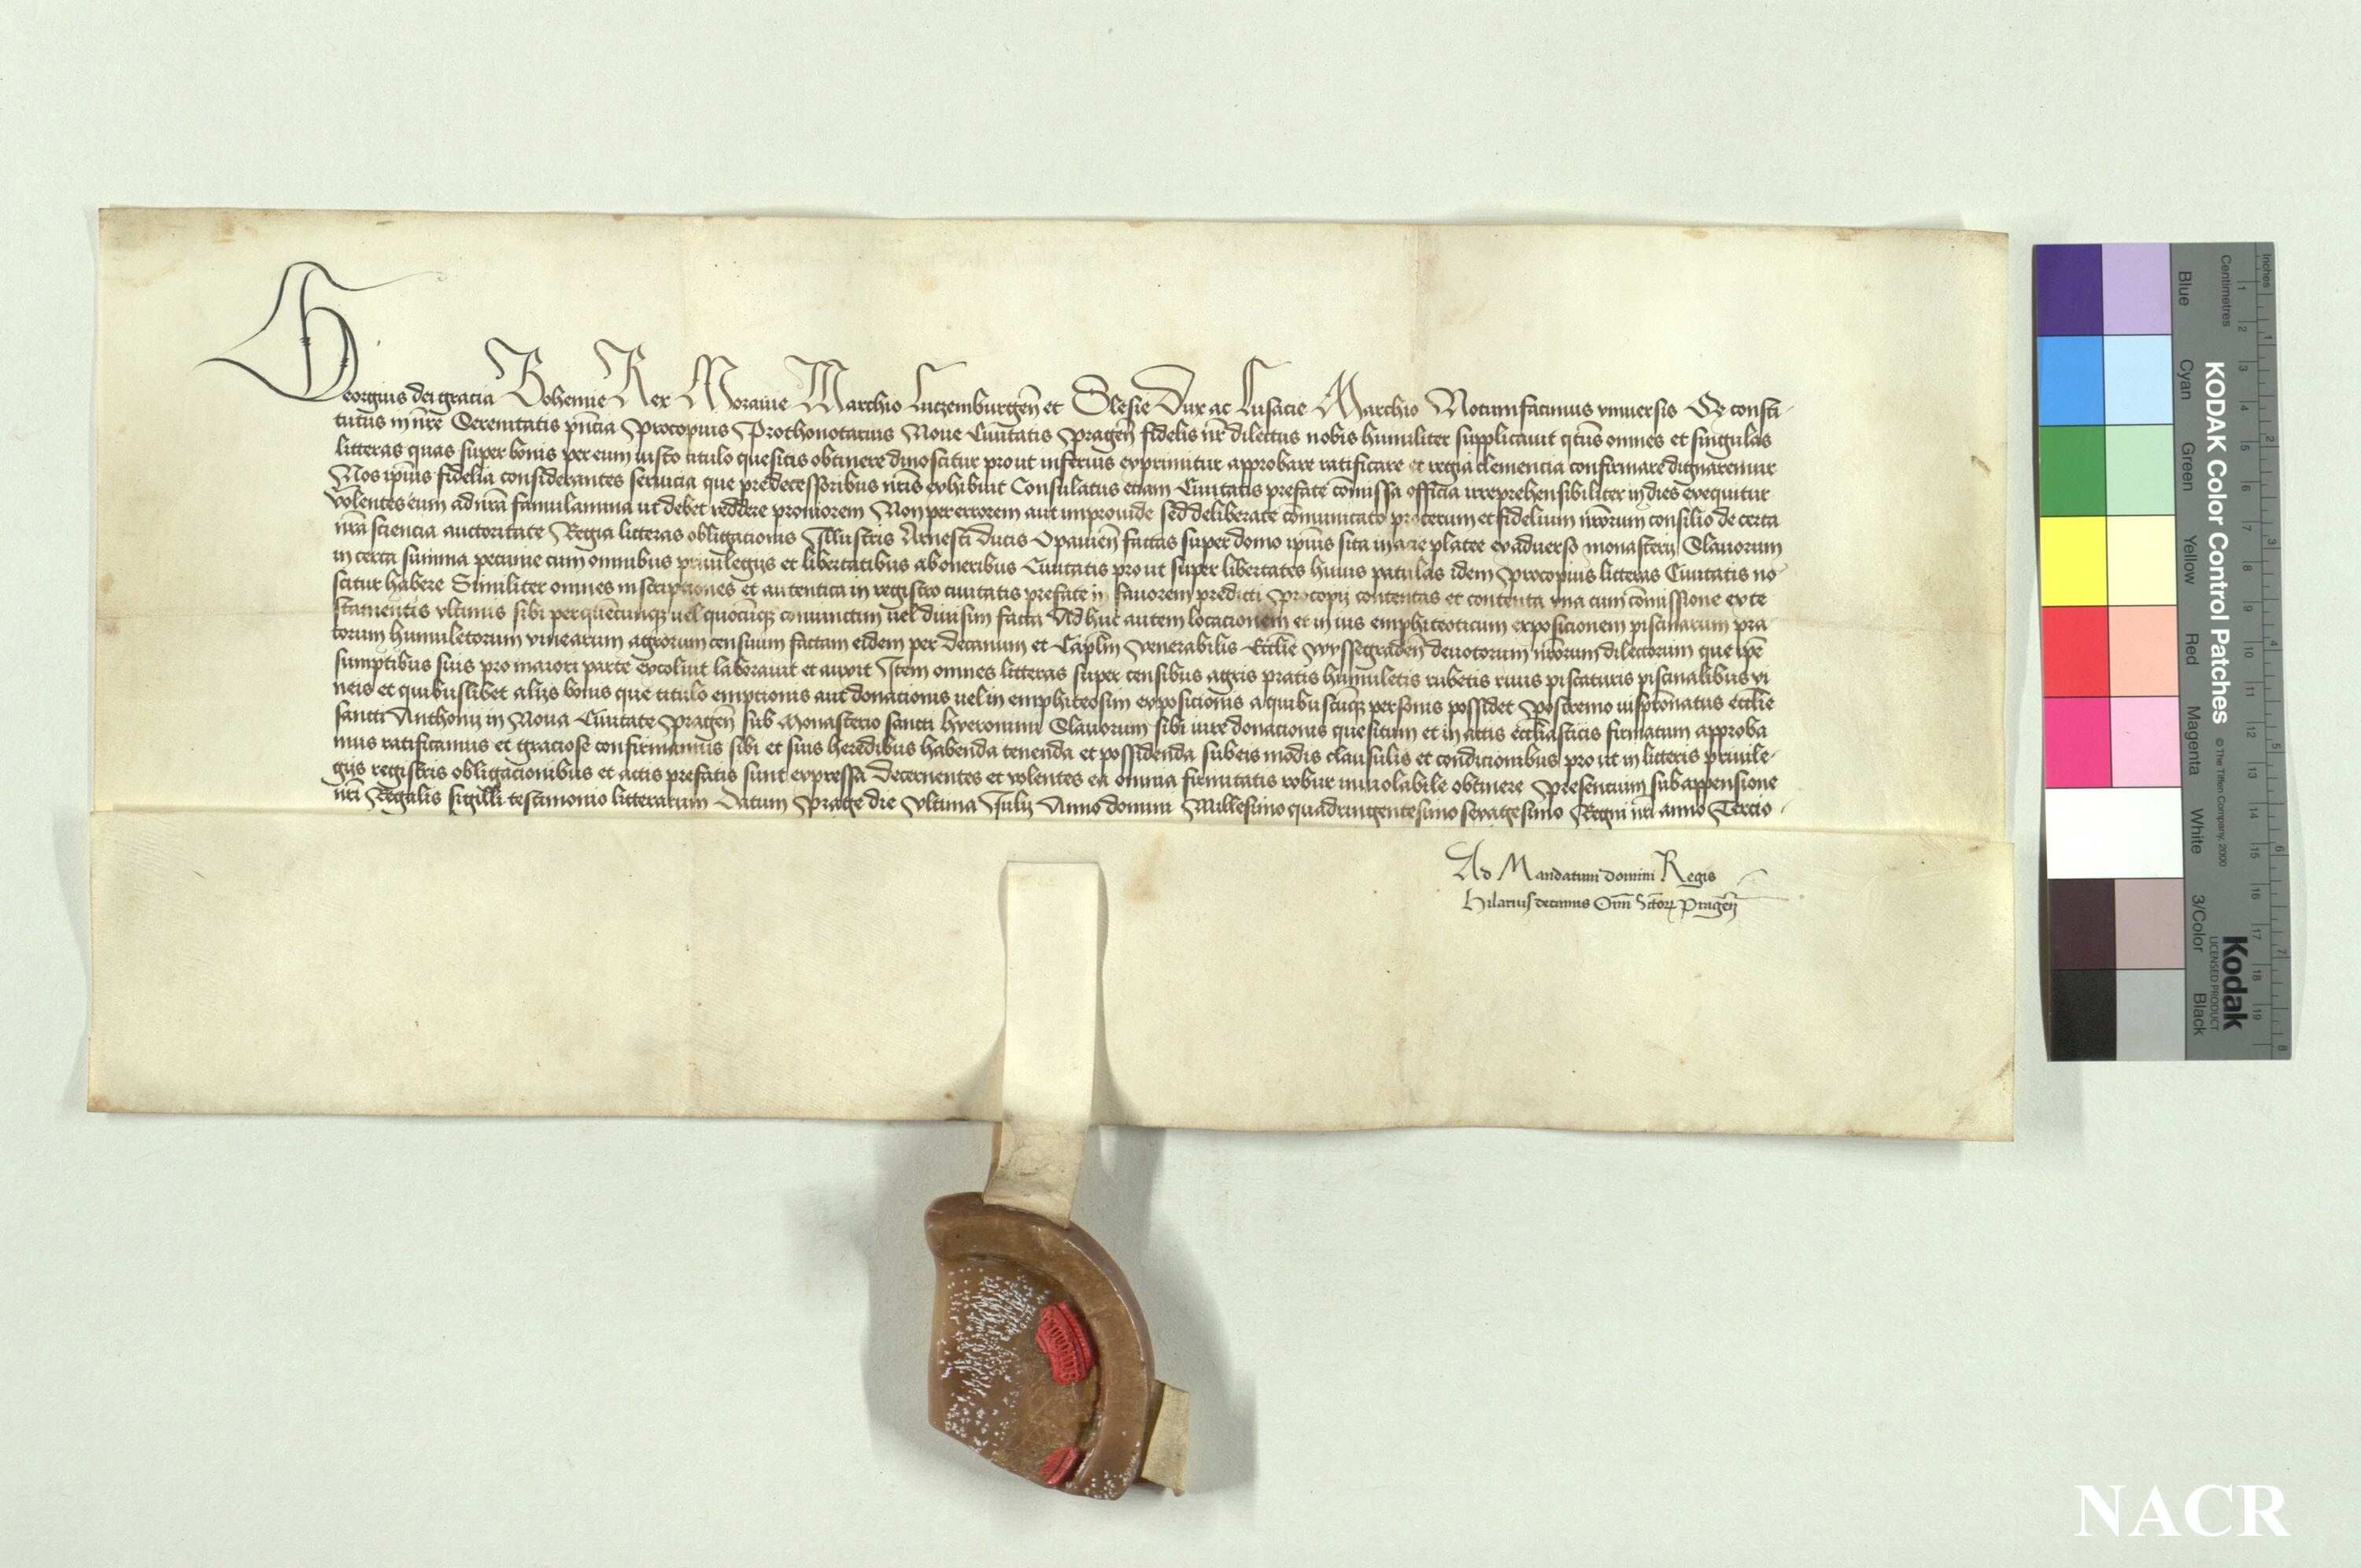 Georgius dei gracia Bohemie Rex Moravie Marchio Luczemburgen̄ et Slesie Dux ac Lusacie Marchio Notum facimus vniuersis Qᷓ consti-
tutus in nr̄e Serenitatis pn̄cia Procopius Prothonotarius Noue Ciuitatis Pragen̄ fidelis nr̄ dilectus nobis humiliter supplicauit qt̄us omnes et singulas
litteras quas super bonis per eum iusto titulo quesitis obtinere dinoscitur prout inferius exprimitur approbare ratificare et regia clemencia confirmare dignaremur
Nos ip̄ius fidelia considerantes seruicia que predecessoribus nr̄is exhibuit Consulatus etiam Ciuitatis prefate cōmissa officia irreprehensibiliter in dies exequitur
volentes eum ad nr̄a famulamina ut debet reddere proniorem Non per errorem aut improuide sed deliberate cōmunicato procerum et fidelium nr̄orum consilio de certa
nr̄a sciencia auctoritate Regia litteras obligacionis Illustris Arnesti Ducis Opauien̄ factas super domo ip̄ius sita in acie platee exaduerso monasterij Slauorum
in certa summa pecunie cum omnibus priuilegijs et libertatibus ab oneribus Ciuitatis prout super libertates huius patulas idem Procopius litteras Ciuitatis no-
scitur habere Similiter omnes inscripciones et autentica in registro ciuitatis prefate in fauorem predicti Procopij contentas et contenta vna cum cōmissione ex te
stamentis vltimis sibi per quecunqꝫ uel quocūqꝫ coniunctim uel diuisim facta Ad huc autem locacionem et in ius emphiteoticum exposicionem piscinarum pra-
torum humuletorum vinearum agrorum censuum factam eidem per decanum et Caplm̄ Venerabilis Eccl̄ie Wyssegraden̄ deuotorum nr̄orum dilectorum que ip̄e
sumptibus suis pro maiori parte excoluit laborauit et auxit Item omnes litteras super censibus agris pratis humuletis rubetis riuis piscaturis piscinalibus vi
neis et quibuslibet alijs bonis que titulo empcionis aut donacionis uel in emphiteosim exposicionis a quibuscūqꝫ personis possidet Postremo iuspr̄onatus eccl̄ie
sancti Anthonij in Noua Ciuitate Pragen̄ sub Monasterio sancti Hyeronimi Slauorum sibi iure donacionis quesitum et in actis eccl̄iasticis firmatum approba
mus ratificamus et graciose confirmamus sibi et suis heredibus habenda tenenda et possidenda sub eis modis clausulis et condicionibus prout in litteris priuile-
gijs registris obligacionibus et actis prefatis sunt expressa Decernentes et volentes ea omnia firmitatis robur inuiolabile obtinere Presencium sub appensione
nr̄i Regalis sigilli testimonio litterarum Datum Prage die Vltima Iulij Anno domini Millesimo quadringentesimo sexagesimo Regni nr̄i anno Tercio
Ad Mandatum domini Regis
Hilarius decanus Om̄ Sc̄torꝝ Pragen̄
Inches
Centimetres
Blue
Cyan
Green
Yellow
Red
Magenta
White
3/Color
Black
KODAK Color Control Patches
© The Tiffen Company, 2000
Kodak
LICENSED PRODUCT
1 2 3 4 5 6 7 8 9 10 11 12 13 14 15 16 17 18 19
1 2 3 4 5 6 7 8
NACR